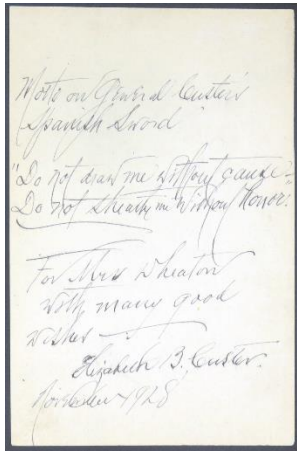 Motto on General Custer's
"Spanish Sword"
"Do not draw me without cause -
Do not sheathe me without honor."
For Mrs Wheaton
with many good
wishes -
Elizabeth B. Custer.
November 1928